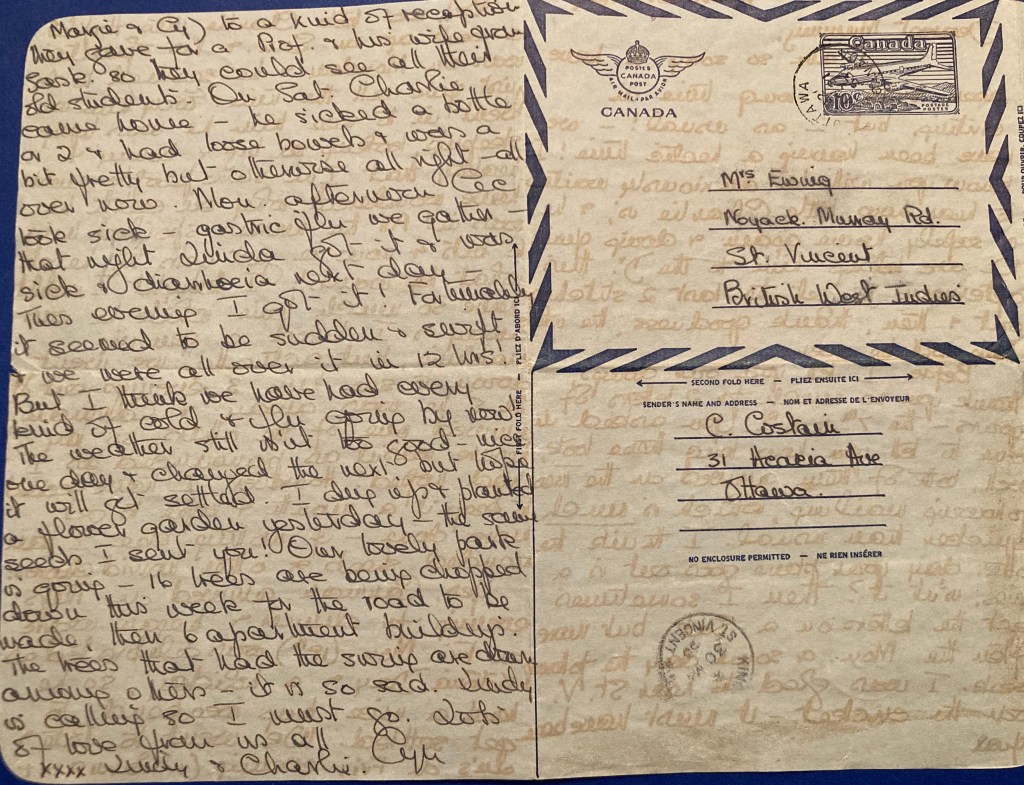 Marie & Cy) to a kind of reception
they gave for a Prof. & his wife from
Sask. so they could see all their
old students. On Sat. Charlie
came home – he sicked a bottle
or 2 & had loose bowels & was a
bit fretty but otherwise all right – all
over now. Mon. afternoon Cec
took sick – gastric flu we gather –
that night Linda got it & was
sick & diarrhoeia next day –
Tues evening I got it! Fortunately
it seemed to be sudden & swift
& we were all over it in 12 hrs!
But I think we have had every
kind of cold & flu going by now.
The weather still isn't too good – nice
one day & changed the next but hope
it will get settled. I dug up & planted
a flower garden yesterday – the same
seeds I sent you! Our lovely park
is going – 16 trees are being chopped
down this week for the road to be
made, then 6 apartment buildings.
The trees that had the swing are down
among others – it is so sad. Lindy
is calling so I must go. Lots
of love from us all
xxxx Lindy & Charlie.
POSTES
CANADA
POST
AIR MAIL • PAR AVION
CANADA
Canada
10¢
POSTAGE
POSTES
OTTAWA
Mrs Ewing
Noyack. Murray Rd.
St. Vincent
British West Indies
FIRST FOLD HERE — PLIEZ D'ABORD ICI
SECOND FOLD HERE — PLIEZ ENSUITE ICI
SENDER'S NAME AND ADDRESS – NOM ET ADRESSE DE L'ENVOYEUR
C. Costain
31 Acacia Ave
Ottawa.
NO ENCLOSURE PERMITTED — NE RIEN INSÉRER
ST. VINCENT
30